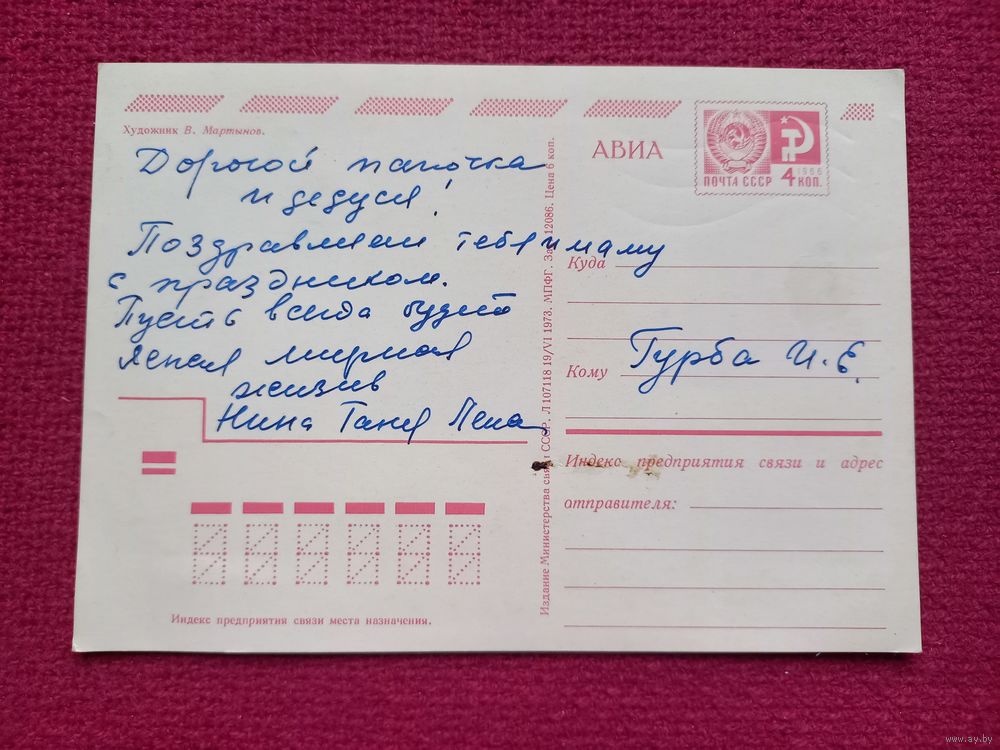 Художник В. Мартынов.
Дорогой папочка
и дедуся!
Поздравляем тебя и маму
с праздником.
Пусть всегда будет
ясная мирная
жизнь
Нина Таня Лена
Индекс предприятия связи места назначения.
Издание Министерства связи СССР. Л107118 19/VI 1973. МПФГ. Зак. 12086. Цена 6 коп.
АВИА
ПОЧТА СССР 4 КОП.
1966
Куда
Кому Гурба И. Е.
Индекс предприятия связи и адрес
отправителя:
www.ay.by